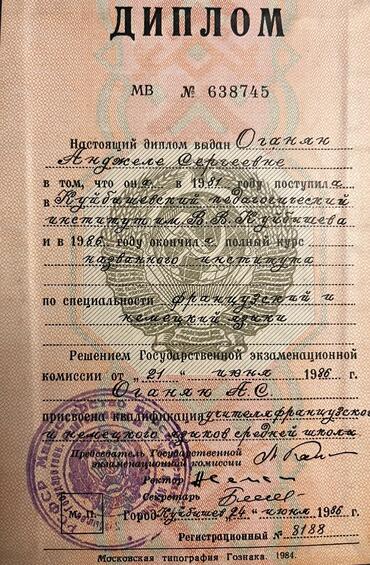 ДИПЛОМ
МВ № 638745
Настоящий диплом выдан Оганян
Анджеле Сергеевне
в том, что она в 1981 году поступила
в Куйбышевский педагогический
институт им. В. В. Куйбышева
и в 1986 году окончила полный курс
названного института
по специальности французский и
немецкий языки
Решением Государственной экзаменационной
комиссии от „21“ июня 1986 г.
Оганян А.С.
присвоена квалификация учителя французского
и немецкого языков средней школы
Председатель Государственной
экзаменационной комиссии
Ректор
Секретарь
М. П.
Город Куйбышев 24 " июня 1986 г.
Регистрационный № 8188
Московская типография Гознака. 1984.